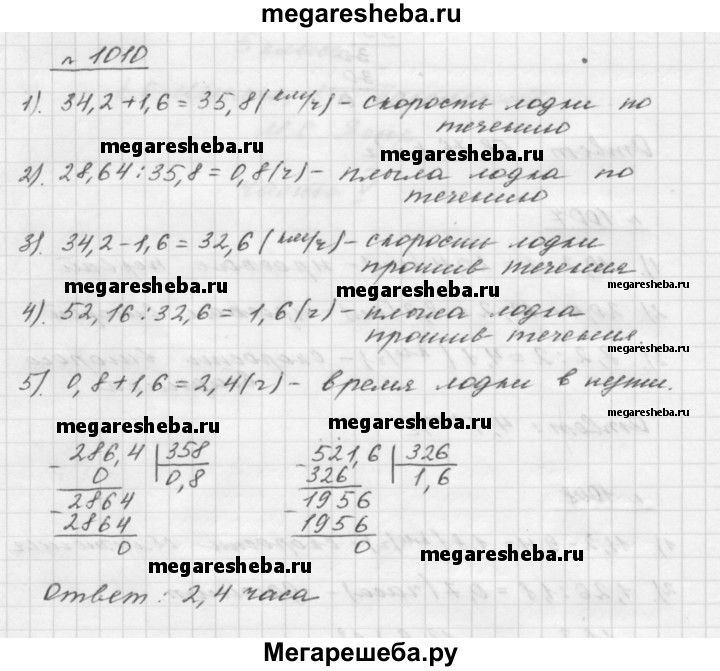 megaresheba.ru
№ 1010
1). 34,2+1,6=35,8(км/ч) – скорость лодки по
течению
megaresheba.ru megaresheba.ru
2). 28,64:35,8=0,8(ч) – плыла лодка по
течению
megaresheba.ru
3). 34,2-1,6=32,6(км/ч) – скорость лодки
против течения
megaresheba.ru megaresheba.ru
4). 52,16:32,6=1,6(ч) – плыла лодка
против течения.
megaresheba.ru
5). 0,8+1,6=2,4(ч) – время лодки в пути.
megaresheba.ru megaresheba.ru megaresheba.ru
286,4 358 521,6 326
0 0,8 326 1,6
2864 1956
2864 1956
0 0
megaresheba.ru megaresheba.ru
Ответ : 2,4 часа
Мегарешеба.ру